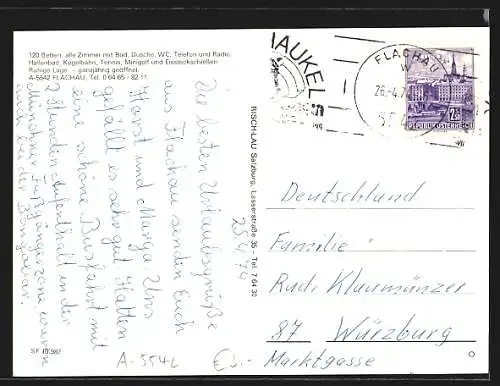 120 Betten, alle Zimmer mit Bad, Dusche, WC, Telefon und Radio
Hallenbad, Kegelbahn, Tennis, Minigolf und Eisstockschießen
Ruhige Lage – ganzjährig geöffnet
A-5542 FLACHAU, Tel. 0 64 65 / 82 11
Die besten Urlaubsgrüße
aus Flachau senden Euch
Horst und Marga. Uns
gefällt es sehr gut. Hatten
eine schöne Busfahrt mit
2 Stunden Aufenthalt in der
Münchner Fußgängerzone waren
auch bei der
25.4.74
RISCH-LAU Salzburg, Lasserstraße 35 - Tel 7 64 30
HAUKEL
FLACHAU
REPUBLIK ÖSTERREICH
Deutschland
Familie
Rudi Klaumünzer
87 Würzburg
Marktgasse
A-5542